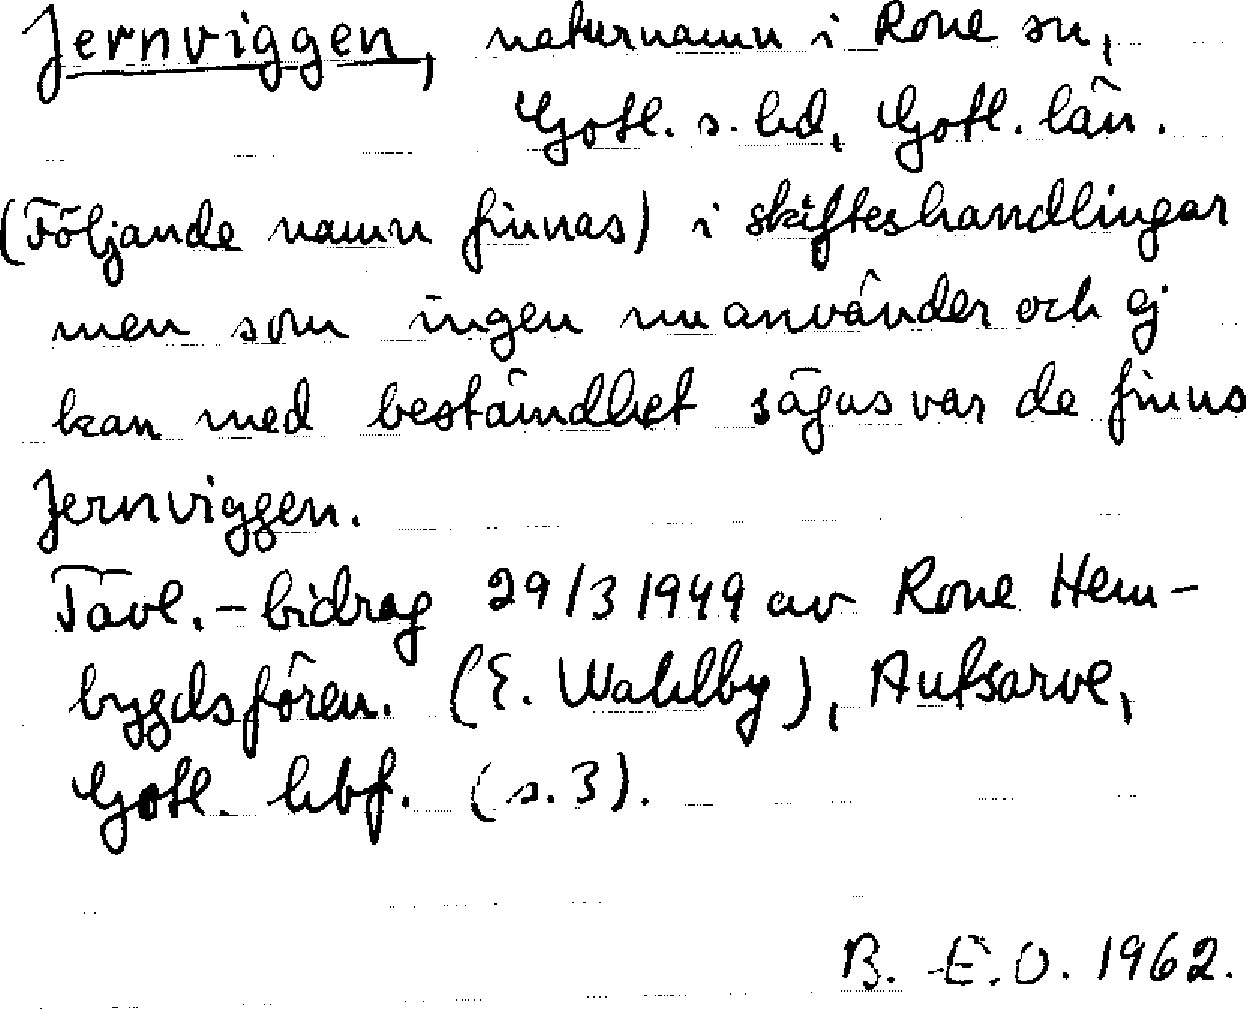 Jernviggen, naturnamn i Rone sn,
Gotl. s. hd, Gotl. län.
(Följande namn finnas) i skifteshandlingar
men som ingen nu använder och ej
kan med bestämdhet sägas var de finns
Jernviggen.
Tävl.-bidrag 29/3 1949 av Rone Hem-
bygdsfören. (E. Wahlby), Autsarve,
Gotl. hbf. (s. 3).
B. E. O. 1962.